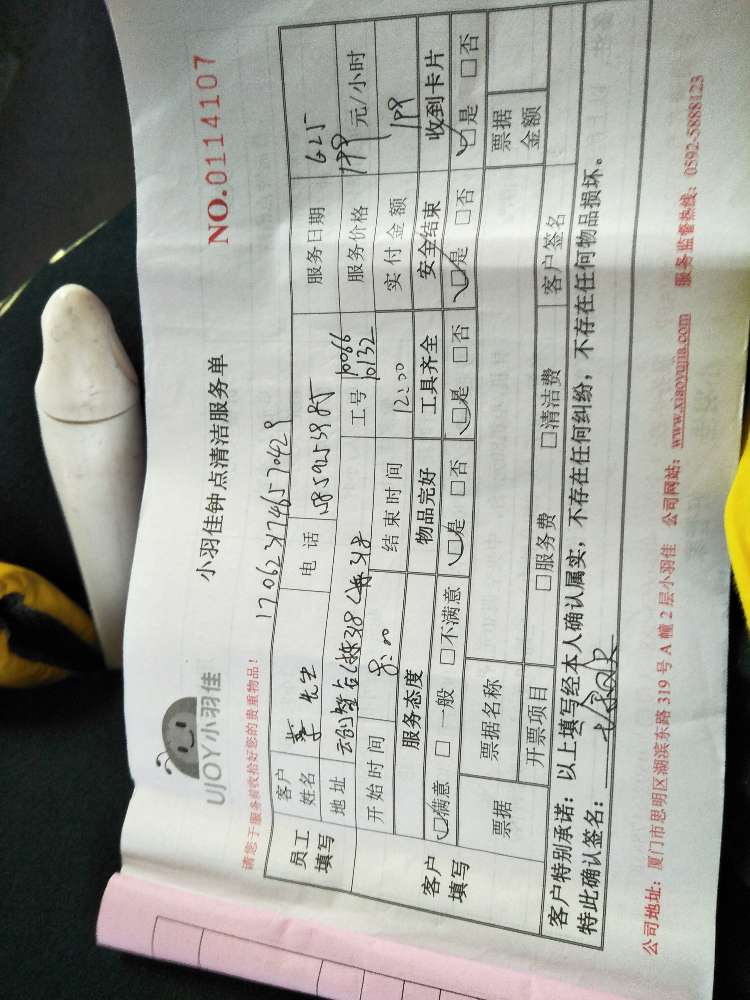 小羽佳钟点清洁服务单
NO.0114107
UJOY小羽佳
请您于服务前收拾好您的贵重物品！
员工填写
客户姓名 先生 电话 服务日期 6.25
地址 工号 10066 10132 服务价格 199 元/小时
开始时间 8:00 结束时间 12:00 实付金额 199
客户填写
服务态度 物品完好 工具齐全 安全结束 收到卡片
□满意 □一般 □不满意 □是 □否 □是 □否 □是 □否 □是 □否
票据 票据名称 票据金额
开票项目 □服务费 □清洁费 客户签名
客户特别承诺：以上填写经本人确认属实，不存在任何纠纷，不存在任何物品损坏。
特此确认签名：
公司地址：厦门市思明区湖滨东路 319 号 A 幢 2 层小羽佳 公司网站：www.xiaoyujia.com 服务监督热线：0592-5888123